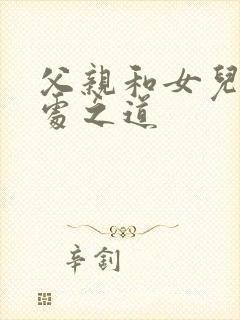 父親和女兒
處之道
辛釗